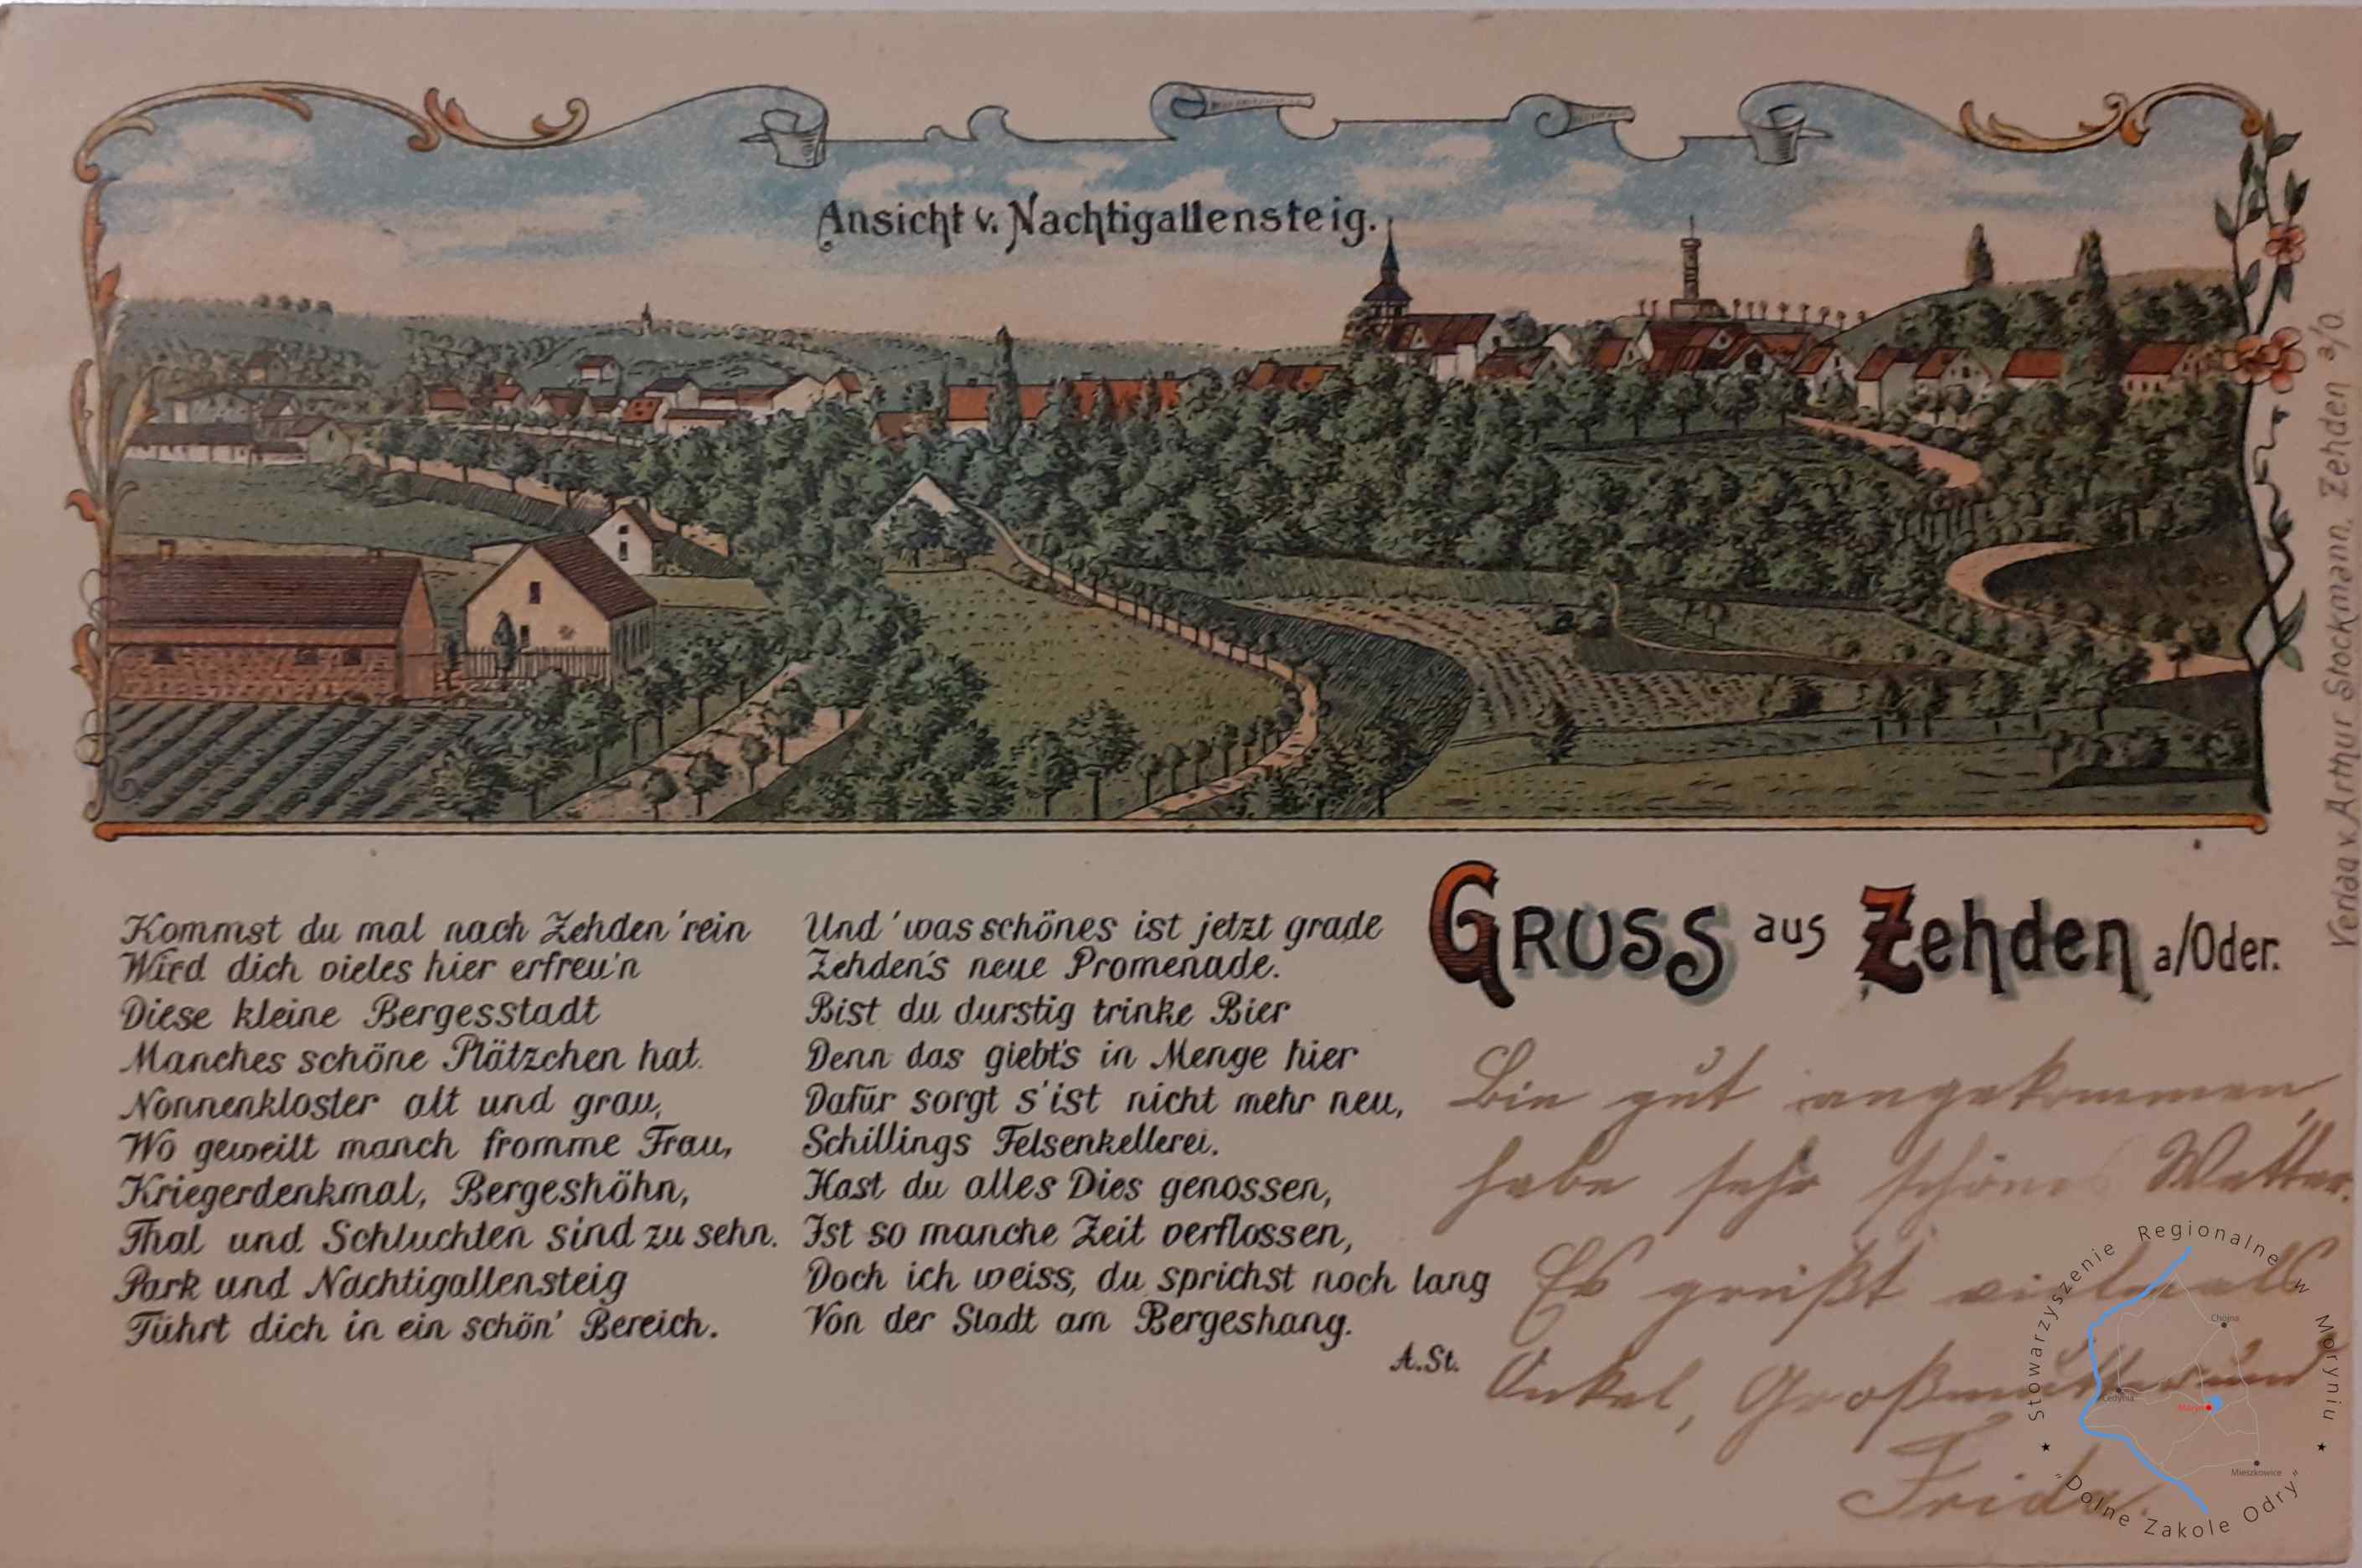 Ansicht v. Nachtigallensteig.
Verlag v. Arthur Stockmann, Zehden a/O.
Kommst du mal nach Zehden 'rein
Wird dich vieles hier erfreu'n
Diese kleine Bergesstadt
Manches schöne Plätzchen hat.
Nonnenkloster alt und grau,
Wo geweilt manch fromme Frau,
Kriegerdenkmal, Bergeshöhn,
Thal und Schluchten sind zu sehn.
Park und Nachtigallensteig
Führt dich in ein schön' Bereich.
Und 'was schönes ist jetzt grade
Zehden's neue Promenade.
Bist du durstig trinke Bier
Denn das giebt's in Menge hier
Dafür sorgt s'ist nicht mehr neu,
Schillings Felsenkellerei.
Hast du alles Dies genossen,
Ist so manche Zeit verflossen,
Doch ich weiss, du sprichst noch lang
Von der Stadt am Bergeshang.
A.St.
GRUSS aus Zehden a/Oder.
Bin gut angekommen,
habe sehr schönes Wetter.
Es grüßt vielmals
Onkel, Großmutter und
Frida.
Stowarzyszenie Regionalne w Moryniu
"Dolne Zakole Odry"
Chojna
Cedynia
Moryń
Mieszkowice